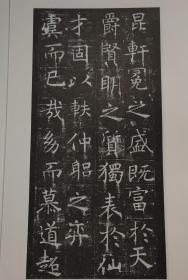 昆軒冕之盛既富於天
爵賢明之質獨表於仙
才固以軼仲之弈
而已哉而慕道超